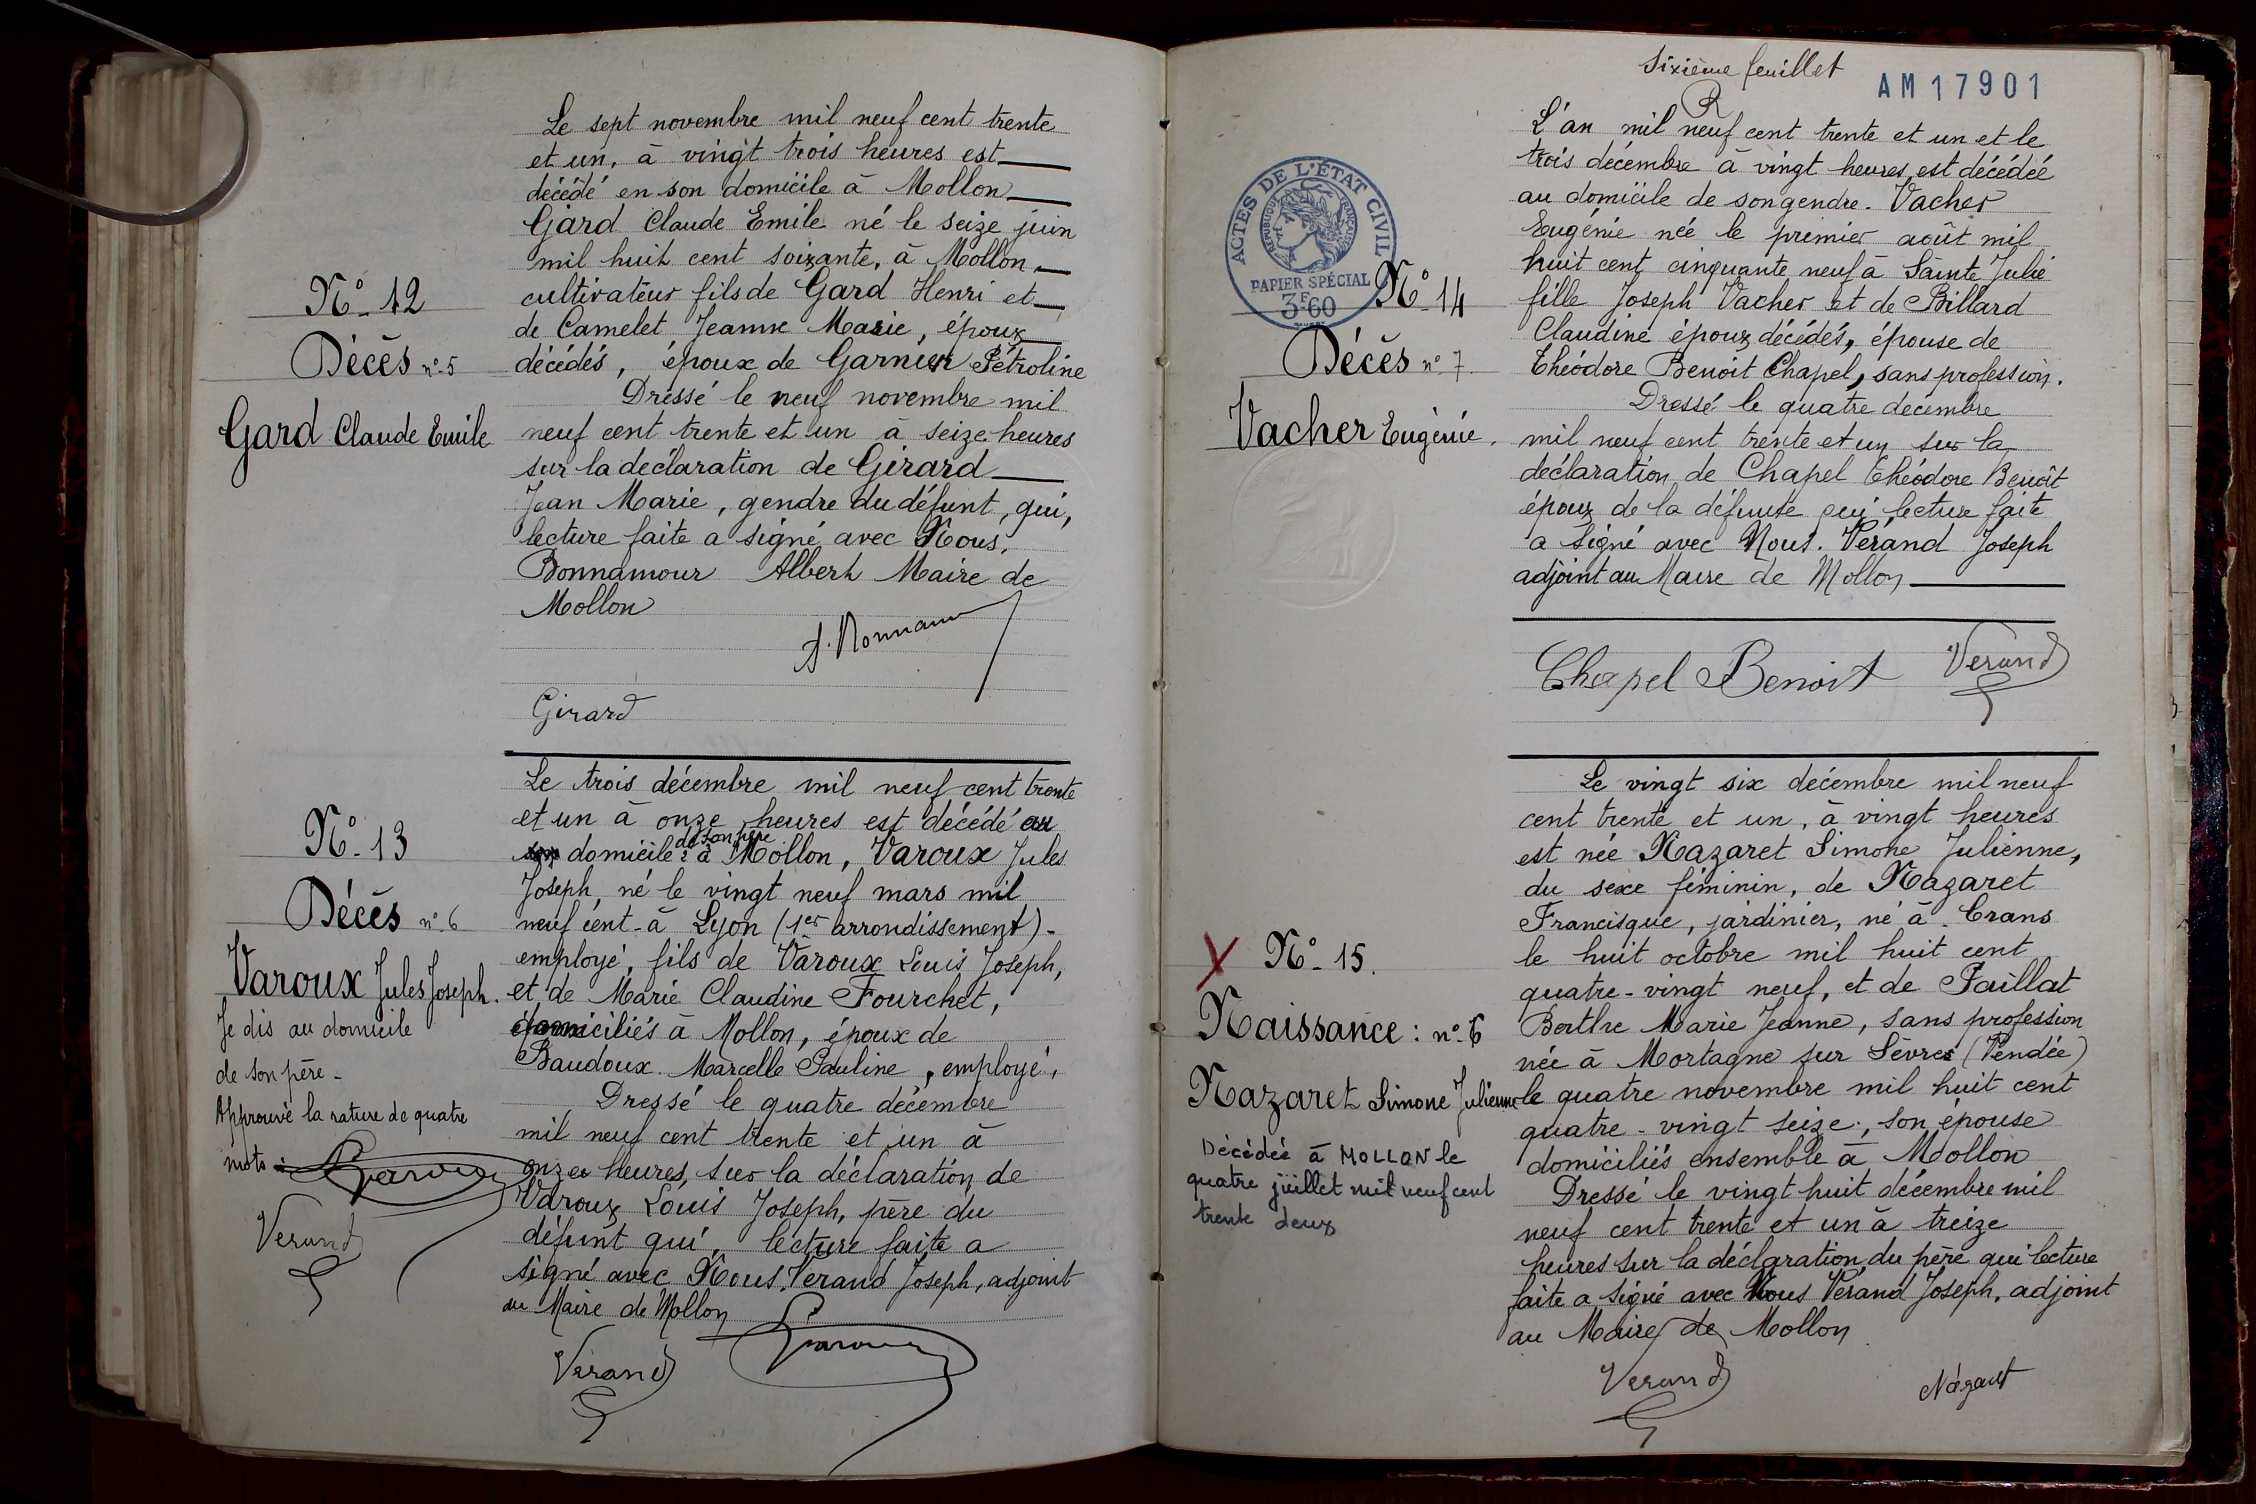 N°- 12
Décès n°-5
Gard Claude Emile
Le sept novembre mil neuf cent trente
et un, à vingt trois heures est
décédé en son domicile à Mollon
Gard Claude Emile né le seize juin
mil huit cent soixante, à Mollon,
cultivateur fils de Gard Henri et
de Camelet Jeanne Marie, époux
décédés, époux de Garnier Pétroline
Dressé le neuf novembre mil
neuf cent trente et un à seize heures
sur la déclaration de Girard
Jean Marie, gendre du défunt, qui,
lecture faite a signé avec Nous,
Bonnamour Albert Maire de
Mollon
A. Bonnamour
Girard
N°- 13
Décès n°-6
Varoux Jules Joseph.
Je dis au domicile
de son père -
Approuvé la rature de quatre
mots :
Verand
Le trois décembre mil neuf cent trente
et un à onze heures est décédé au
domicile de son père à Mollon, Varoux Jules
Joseph, né le vingt neuf mars mil
neuf cent à Lyon (1er arrondissement) -
employé, fils de Varoux Louis Joseph,
et de Marie Claudine Fourchet,
domiciliés à Mollon, époux de
Baudoux Marcelle Pauline, employé,
Dressé le quatre décembre
mil neuf cent trente et un à
onze heures, sur la déclaration de
Varoux Louis Joseph, père du
défunt qui, lecture faite a
signé avec Nous, Verand Joseph, adjoint
au Maire de Mollon
Verand
Sixième feuillet
AM17901
ACTES DE L'ÉTAT CIVIL
RÉPUBLIQUE FRANÇAISE
PAPIER SPÉCIAL
3F60
N°- 14
Décès n°-7
Vacher Eugénie.
L'an mil neuf cent trente et un et le
trois décembre à vingt heures est décédée
au domicile de son gendre. Vacher
Eugénie née le premier août mil
huit cent cinquante neuf à Sainte Julie
fille Joseph Vacher et de Billard
Claudine époux décédés, épouse de
Théodore Benoit Chapel, sans profession.
Dressé le quatre décembre
mil neuf cent trente et un sur la
déclaration de Chapel Théodore Benoît
époux de la défunte qui lecture faite
a signé avec Nous. Vérand Joseph
adjoint au Maire de Mollon
Chapel Benoit Verand
N°- 15.
Naissance : n°-6
Nazaret Simone Julienne
Décédée à MOLLON le
quatre juillet mil neuf cent
trente deux
Le vingt six décembre mil neuf
cent trente et un, à vingt heures
est née Nazaret Simone Julienne,
du sexe féminin, de Nazaret
Francisque, jardinier, né à Crans
le huit octobre mil huit cent
quatre-vingt neuf, et de Paillat
Berthe Marie Jeanne, sans profession
née à Mortagne sur Sèvres (Vendée)
le quatre novembre mil huit cent
quatre-vingt seize, son épouse
domiciliés ensemble à Mollon
Dressé le vingt huit décembre mil
neuf cent trente et un à treize
heures sur la déclaration du père qui lecture
faite a signé avec Nous Verand Joseph, adjoint
au Maire de Mollon
Verand Nazaret